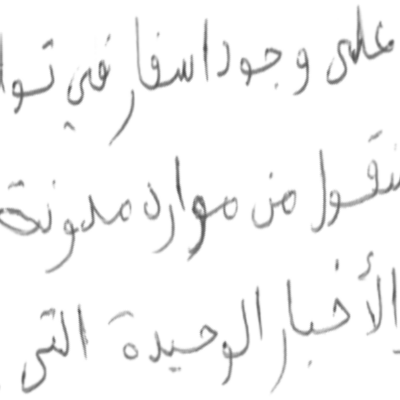 على وجود اسفار في توا
منقول من موارد مدونة
الأخبار الوحيدة التي